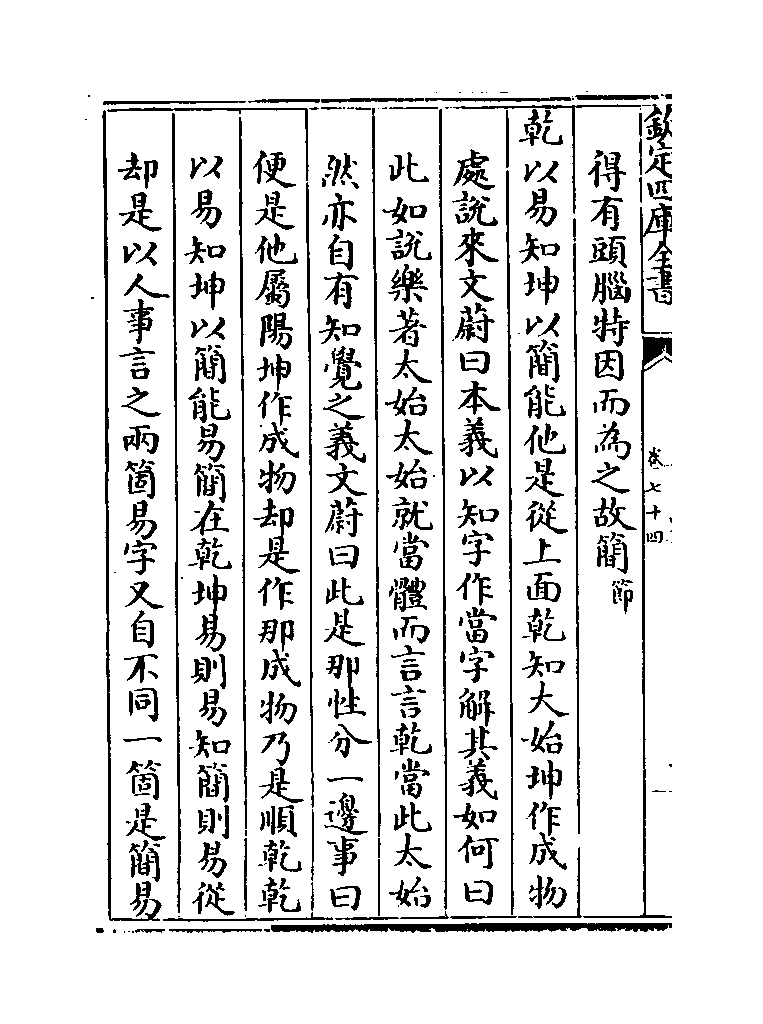 欽定四庫全書
卷七十四
得有頭腦特因而為之故簡節
乾以易知坤以簡能他是從上面乾知大始坤作成物
處說來文蔚曰本義以知字作當字解其義如何曰
此如說樂著太始太始就當體而言言乾當此太始
然亦自有知覺之義文蔚曰此是那性分一邊事曰
便是他屬陽坤作成物却是作那成物乃是順乾乾
以易知坤以簡能易簡在乾坤易則易知簡則易從
却是以人事言之兩箇易字又自不同一箇是簡易